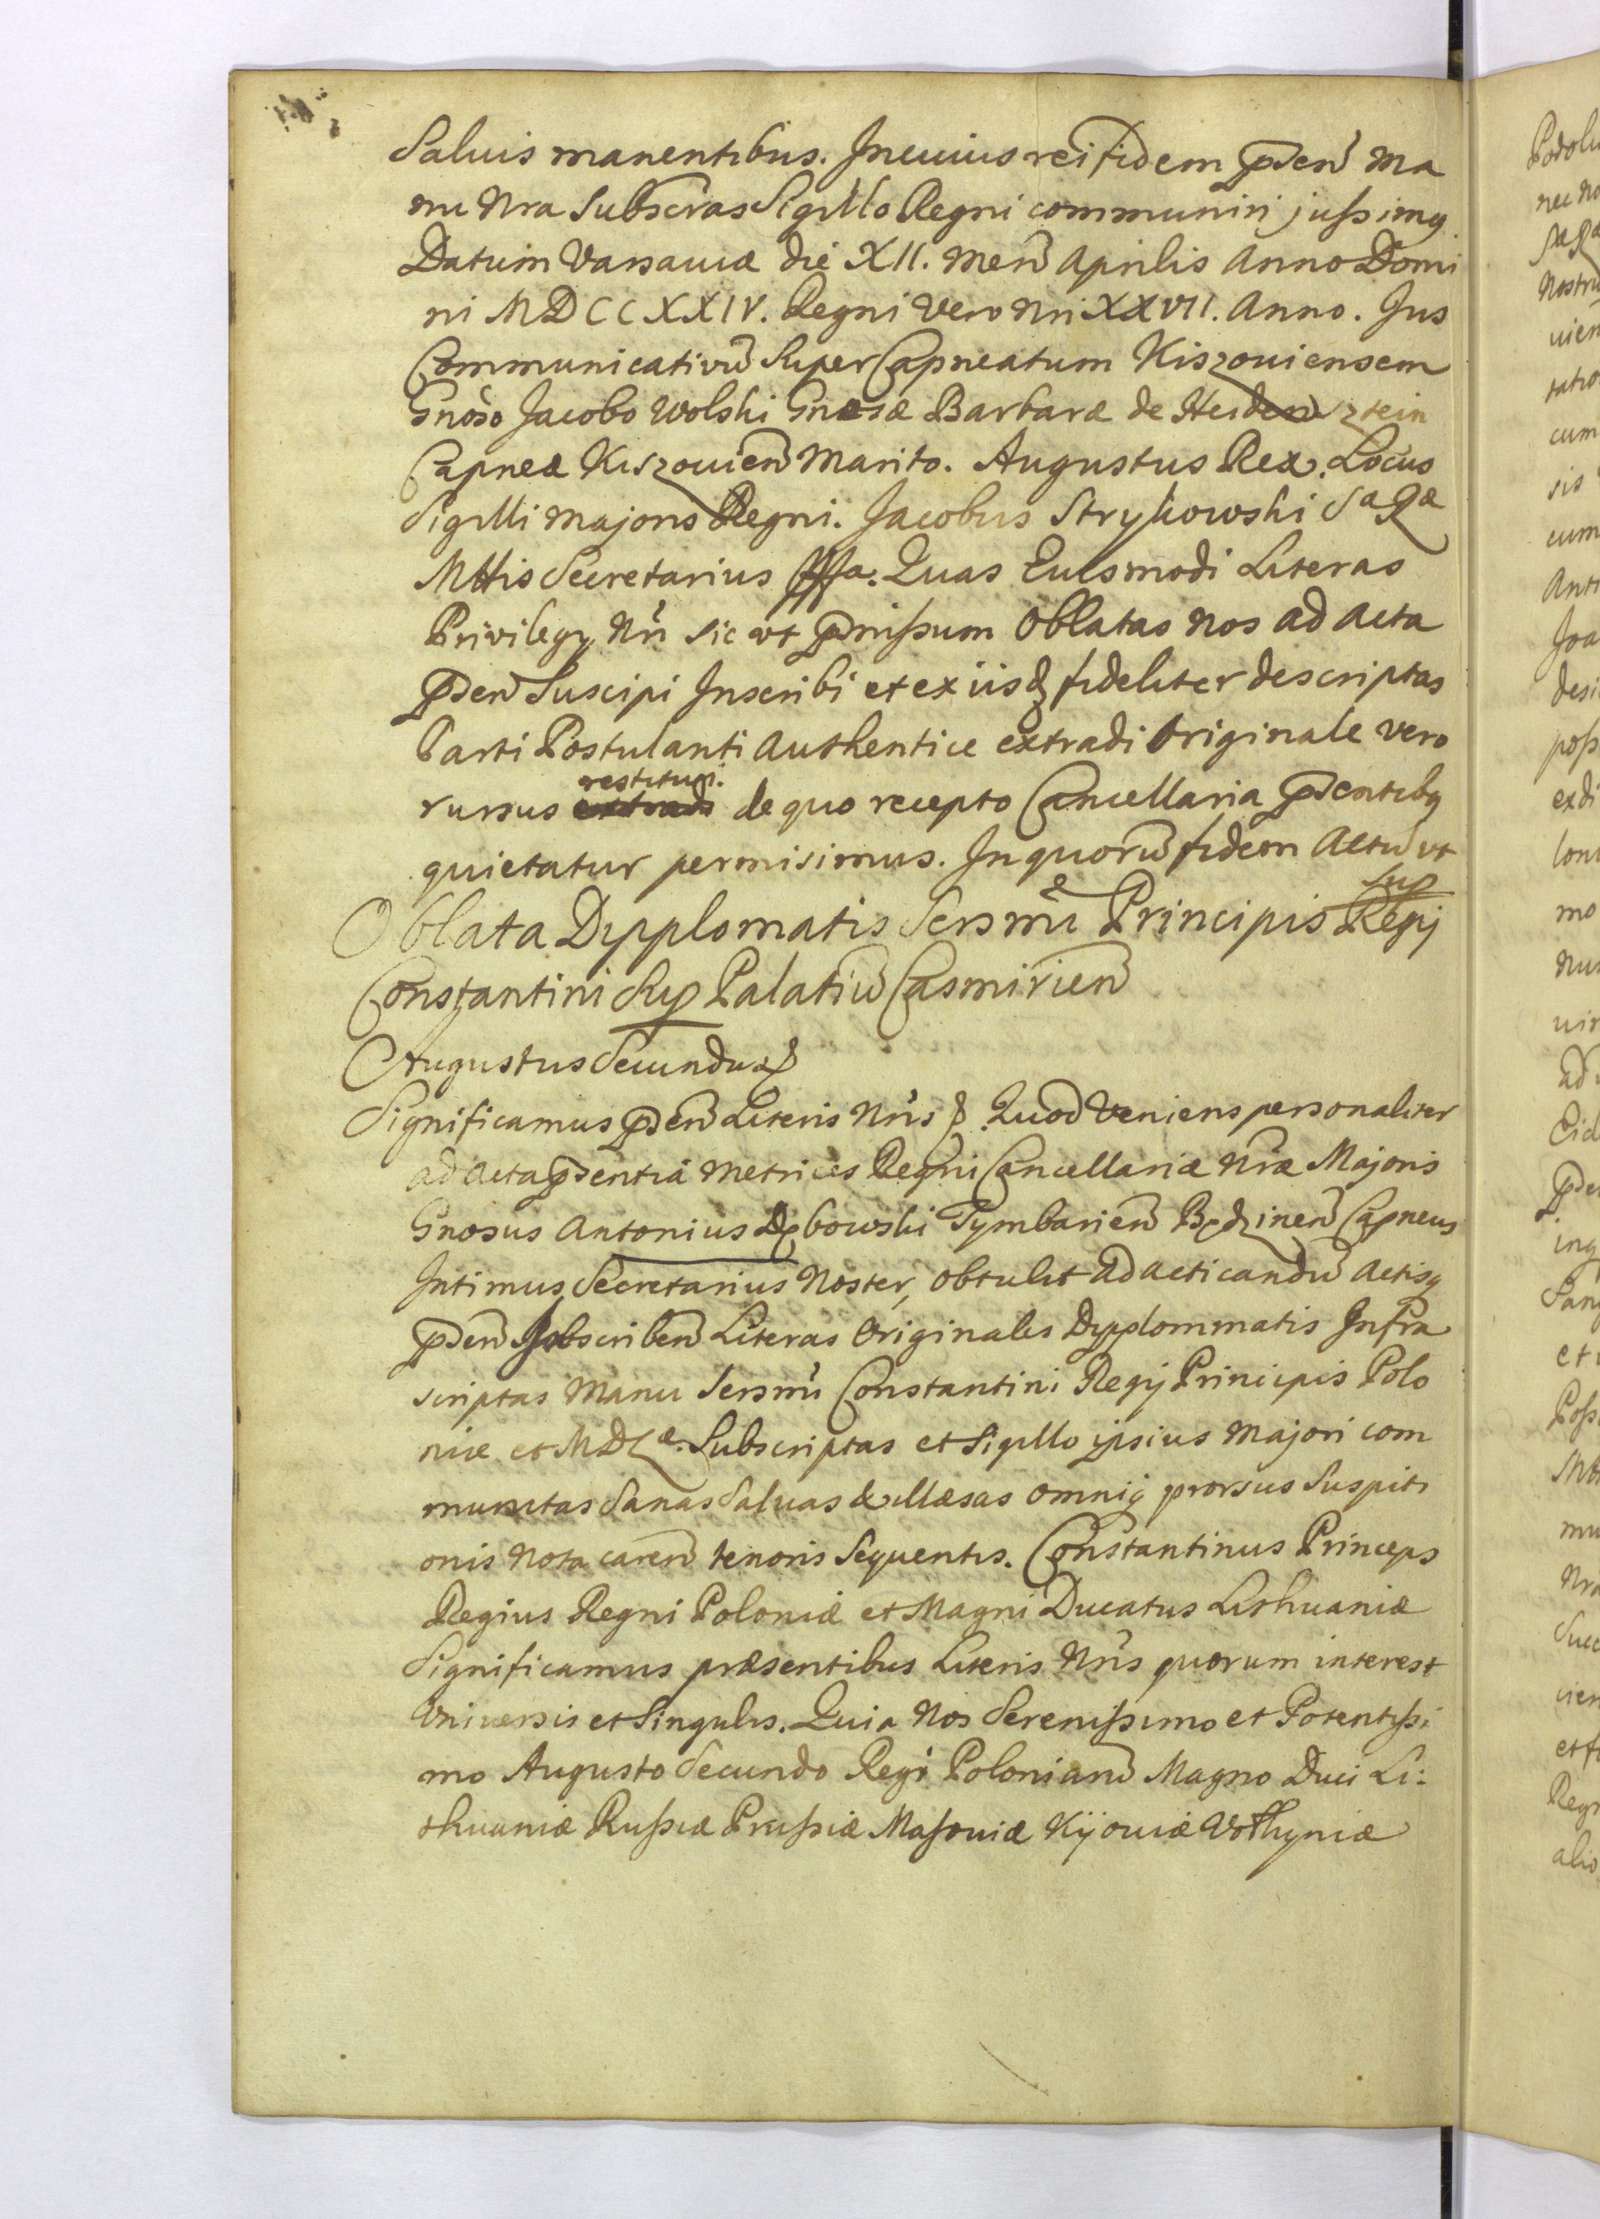 Saluis manentibus. In cuius rei fidem pden̄ Ma
nu Nra Subscras Sigillo Regni communiri jussimq
Datum Varsaviæ die XII. Men̄ Aprilis Anno Domi
ni MDCCXXIV. Regni Vero Nri XXVII. Anno. Jus
Communicativū Super Capneatum Kiszoviensem
Gnoso Jacobo Wolski Gnæsæ Barbaræ de Heidensztein
Capneæ Kiszovien̄ Marito. Augustus Rex. Locus
Sigilli Majoris Regni. Jacobus Strykowski SaRæ
Mttis Secretarius Quas Euismodi Literas
Privilegy Nri sic ut pmissum Oblatas Nos ad Acta
pden̄ Suscipi Inscribi et ex iisdq fideliter descriptas
Parti Postulanti Authentice extradi Originale vero
rursus extradi restitui. de quo recepto Cancellaria pdentibq
quietatur permisimus. In quorū fidem Actū ut sup
Oblata Dypplomatis Sersmi Principis Regij
Constantini Sup Palatiū Casmirien̄
Augustus Secundus
Significamus pden̄ Literis Nris Quod Veniens personaliter
ad Acta pdentia Metrices Regni Cancellariæ Nræ Majoris
Gnosus Antonius Dębowski Tymbarien̄ Będzinen̄ Capneus
Intimus Secretarius Noster, obtulit ad acticandū Actisq
pden̄ Inscriben̄ Literas Originales Dypplommatis Infra
scriptas Manu Sersmi Constantini Regij Principis Polo
niæ et MDLæ. Subscriptas et Sigillo ipsius Majori com
munitas Sanas Salvas & illæsas omniq prorsus Suspiti
onis nota caren̄ tenoris Sequentis. Constantinus Princeps
Regius Regni Poloniæ et Magni Ducatus Lithuaniæ
Significamus præsentibus Literis Nris quorum interest
Universis et Singulis. Quia Nos Serenissimo et Potentissi
mo Augusto Secundo Regi Poloniarū Magno Duci Li:
thuaniæ Russiæ Prussiæ Masoviæ Kijoviæ Volhyniæ